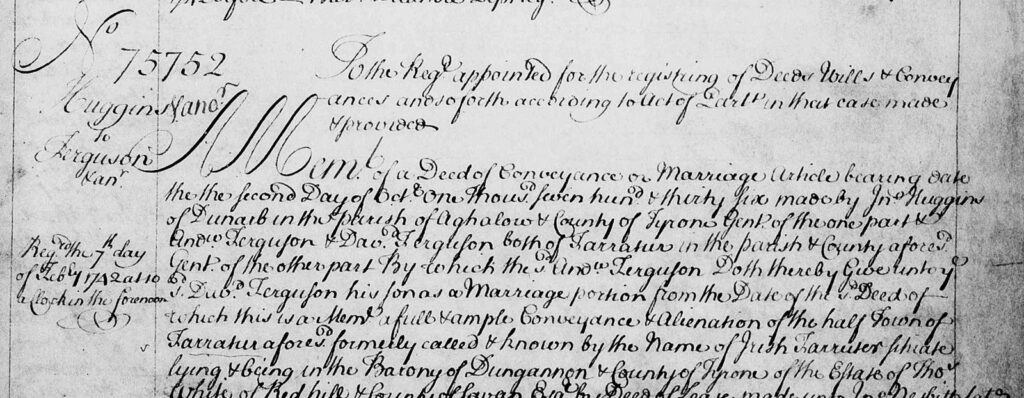 No
75752
Huggins & anor
To
Ferguson
& anr.
To the Regr appointed for the registring of Deeds Wills & Convey
ances and so forth according to Act of Parlt in that case made
& provided
A Meml. of a Deed of Conveyance or Marriage Article bearing date
the the second Day of Octr. One Thous. seven hund & thirty Six made by Jno. Huggins
of Dunarb in the parish of Aghalow & County of Tyrone Gent. of the one part &
Andw Ferguson & Davd. Ferguson both of Farratur in the parish & County afores.d
Gent. of the other part By which the sd. Andw Ferguson Doth thereby Give unto ye
sd. Davd. Ferguson his son as a Marriage portion from the Date of the sd Deed of
which this is a Meml a full & ample Conveyance & Alienation of the half Town of
Farratur afores.d formerly called & known by the Name of Irish Farruter situate
lying & being in the Barony of Dungannon & County of Tyrone of the Estate of Thos
White of Red hill & County of Cavan Esqr. by Deed of Lease made unto
Regrd. the 7th day
of Feby 1742 at 10
a Clock in the forenoon